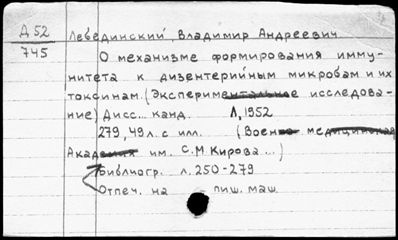 Д 52
745
Лебединский, Владимир Андреевич
О механизме формирования имму-
нитета к дизентерийным микробам и их
токсинам. (Экспериментальное исследова-
ние) Дисс. канд. Л, 1952
279, 49 л. с илл. (Военно медицинская
Академия им. С.М. Кирова...)
Библиогр. л. 250-279
Отпеч. на пиш. маш.